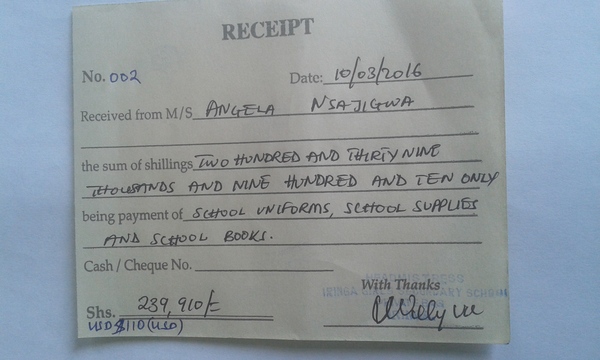 RECEIPT
No. 002 Date: 10/03/2016
Received from M/S ANGELA NSAJIGWA
the sum of shillings TWO HUNDRED AND THIRTY NINE
THOUSANDS AND NINE HUNDRED AND TEN ONLY
being payment of SCHOOL UNIFORMS, SCHOOL SUPPLIES
AND SCHOOL BOOKS.
Cash / Cheque No.
With Thanks
HEADMISTRESS
IRINGA GIRLS SECONDARY SCHOOL
Shs. 239,910/=
USD $110 (USD)